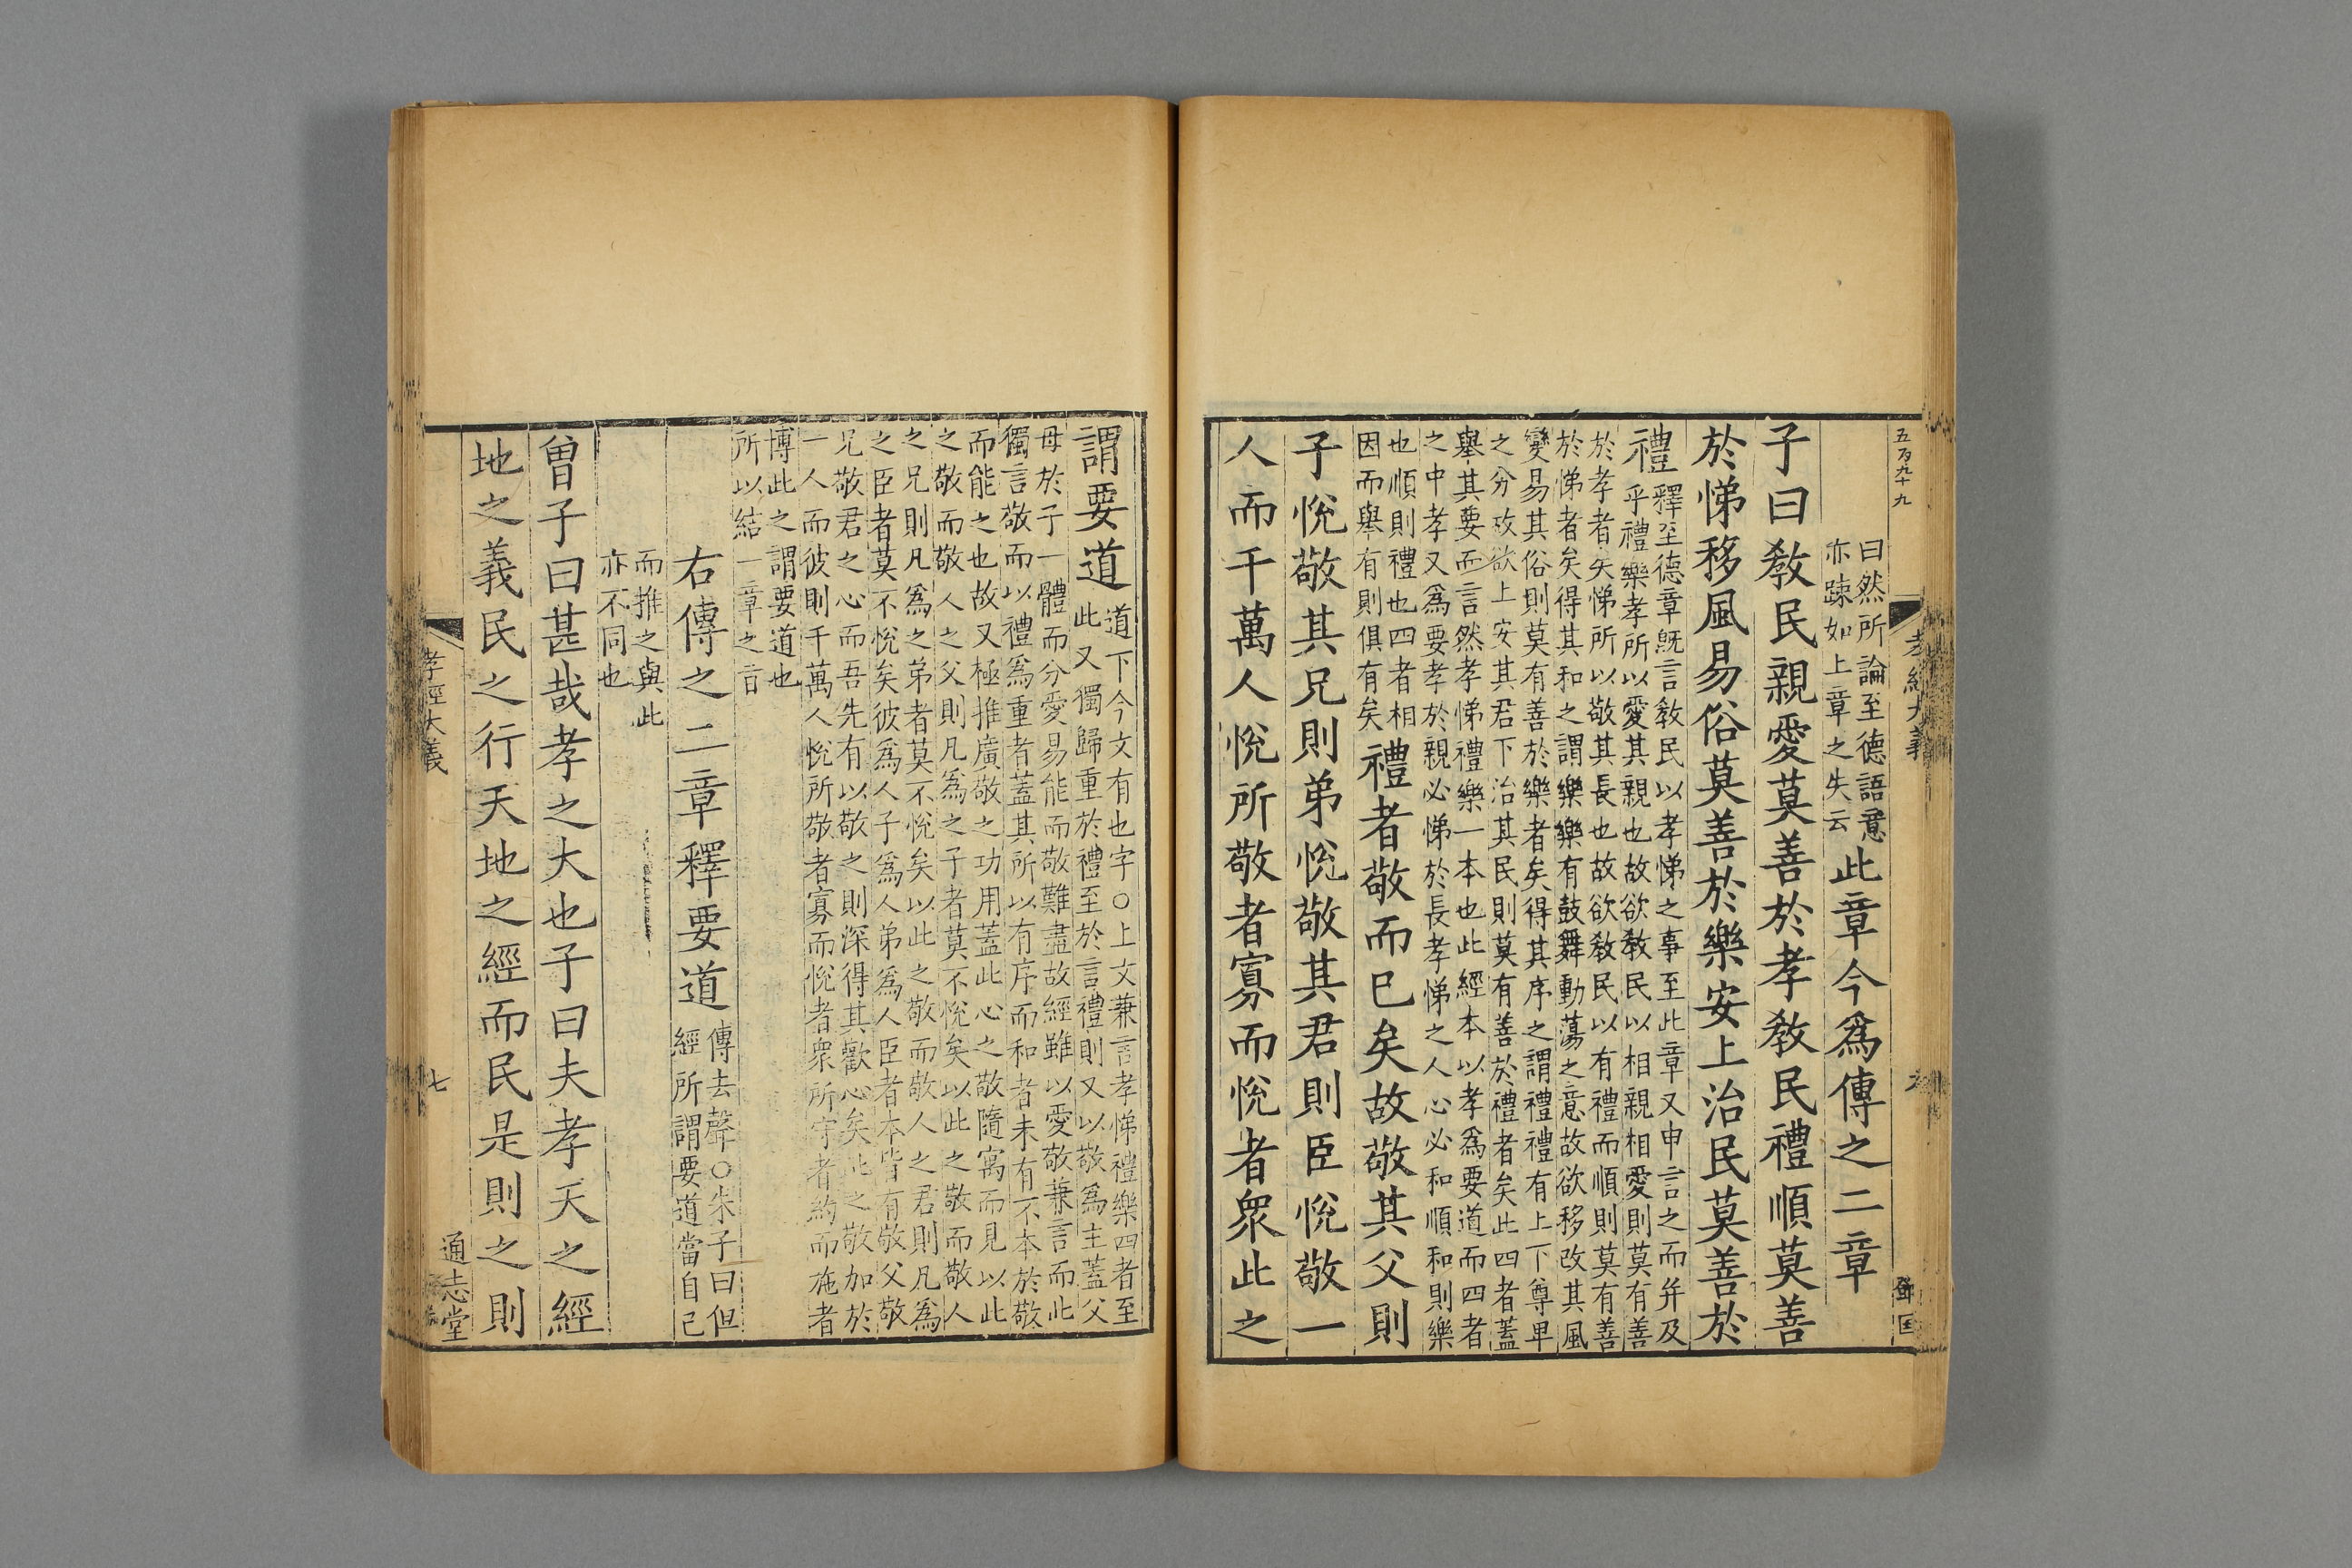 五百九十九
孝經大義
曰然所論至德語意
亦疎如上章之失云
此章今爲傳之二章
子曰教民親愛莫善於孝教民禮順莫善
於悌移風易俗莫善於樂安上治民莫善於
禮
釋至德章旣言教民以孝悌之事至此章又申言之而幷及
乎禮樂孝所以愛其親也故欲教民以相親相愛則莫有善
於孝者矣悌所以敬其長也故欲教民以有禮而順則莫有善
於悌者矣得其和之謂樂樂有鼓舞動蕩之意故欲移改其風
變易其俗則莫有善於樂者矣得其序之謂禮禮有上下尊卑
之分故欲上安其君下治其民則莫有善於禮者矣此四者蓋
舉其要而言然孝悌禮樂一本也此經本以孝爲要道而四者
之中孝又爲要孝於親必悌於長孝悌之人心必和順和則樂
也順則禮也四者相
因而舉有則俱有矣
禮者敬而已矣故敬其父則
子悅敬其兄則弟悅敬其君則臣悅敬一
人而千萬人悅所敬者寡而悅者衆此之
謂要道
道下今文有也字○上文兼言孝悌禮樂四者至
此又獨歸重於禮至於言禮則又以敬爲主蓋父
母於子一體而分愛易能而敬難盡故經雖以愛敬兼言而此
獨言敬而以禮爲重者蓋其所以有序而和者未有不本於敬
而能之也故又極推廣敬之功用蓋此心之敬隨寓而見以此
之敬而敬人之父則凡爲之子者莫不悅矣以此之敬而敬人
之兄則凡爲之弟者莫不悅矣以此之敬而敬人之君則凡爲
之臣者莫不悅矣彼爲人子爲人弟爲人臣者本皆有敬父敬
兄敬君之心而吾先有以敬之則深得其歡心矣此之敬加於
一人而彼則千萬人悅所敬者寡而悅者衆所守者約而施者
博此之謂要道也
所以結一章之言
右傳之二章釋要道
傳去聲○朱子曰但
經所謂要道當自己
而推之與此
亦不同也
曾子曰甚哉孝之大也子曰夫孝天之經
地之義民之行天地之經而民是則之則
孝經大義
七
通志堂